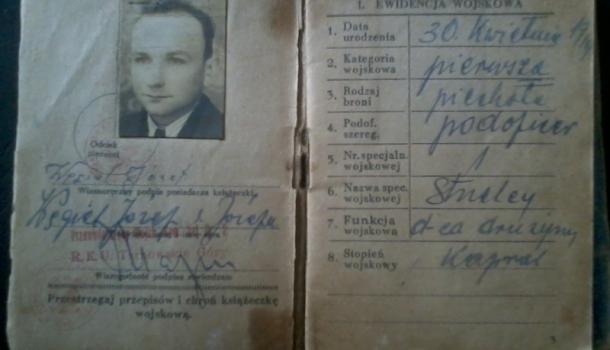 Odcisk
pieczęci
Węgiel Józef
Własnoręczny podpis posiadacza książeczki
Węgiel Józef s. Józefa
R.K.U. Tarnowskie Góry
Własnoręczność podpisu stwierdzam
Przestrzegaj przepisów i chroń książeczkę
wojskową.
I. EWIDENCJA WOJSKOWA
1. Data urodzenia 30. Kwietnia
2. Kategoria wojskowa pierwsza
3. Rodzaj broni piechota
4. Podof. szereg. podoficer
5. Nr. specjaln. wojskowej
6. Nazwa spec. wojskowej
7. Funkcja wojskowa d-ca drużyny
8. Stopień wojskowy Kapral
3